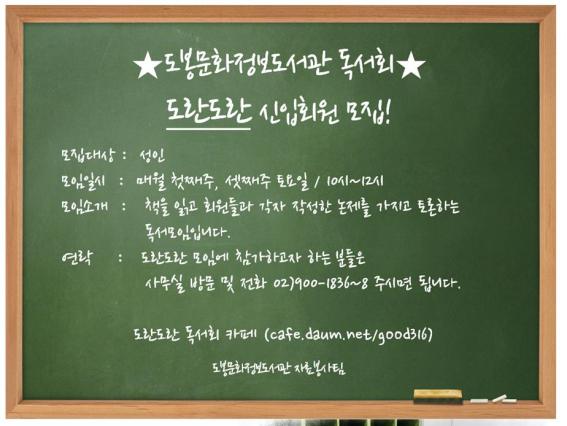 ★도봉문화정보도서관 독서회★
도란도란 신입회원 모집!
모집대상 : 성인
모임일시 : 매월 첫째주, 셋째주 토요일 / 10시~12시
모임소개 : 책을 읽고 회원들과 각자 작성한 논제를 가지고 토론하는
독서모임입니다.
연락 : 도란도란 모임에 참가하고자 하는 분들은
사무실 방문 및 전화 02)900-1836~8 주시면 됩니다.
도란도란 독서회 카페 (cafe.daum.net/good316)
도봉문화정보도서관 자료봉사팀